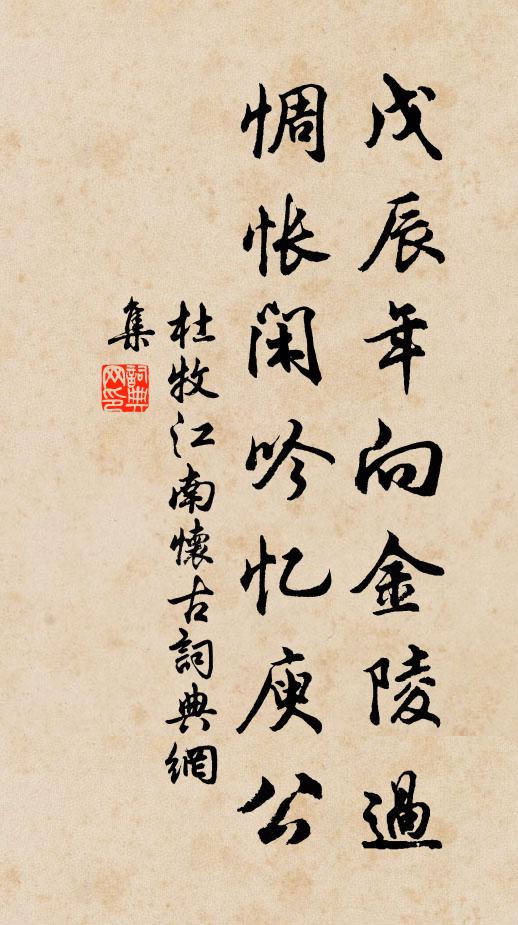 戊辰年向金陵過
惆怅闲吟忆庾公
杜牧江南懷古詞典網
集
詞典
网印